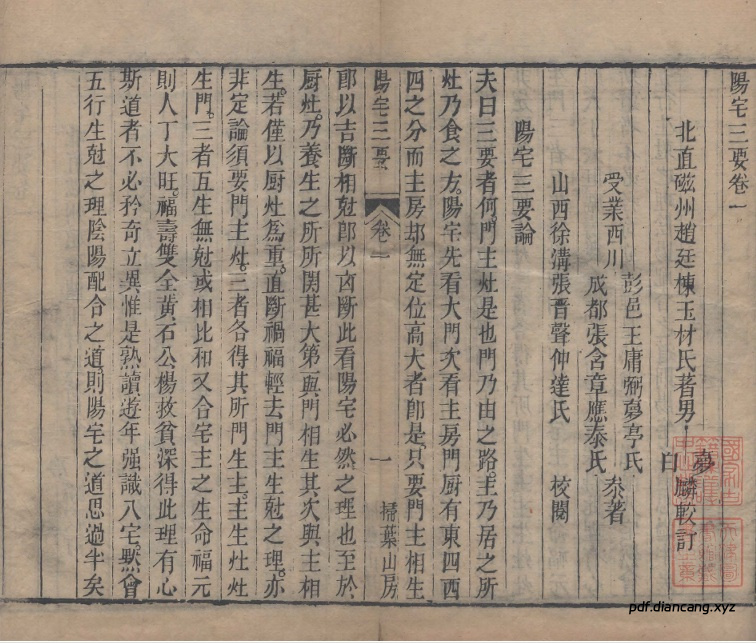 陽宅三要卷一
北直磁州趙廷棟玉材氏著男夢麟較訂
白
受業西川
彭邑王庸弼夢亭氏
成都張含章應泰氏
叅著
山西徐溝張晋聲仲達氏 校閱
陽宅三要論
夫曰三要者何門主灶是也門乃由之路主乃居之所
灶乃食之方陽宅先看大門次看主房門厨有東四西
四之分而主房却無定位高大者卽是只要門主相生
陽宅三要 卷一 一 掃葉山房
卽以吉斷相尅卽以凶斷此看陽宅必然之理也至於
厨灶乃養生之所所関甚大第與門相生其次與主相
生若僅以厨灶為重直斷禍福輕去門主生尅之理亦
非定論須要門主灶三者各得其所門生主主生灶灶
生門三者五生無尅或相比和又合宅主之生命福元
則人丁大旺福壽雙全黄石公楊救貧深得此理有心
斯道者不必矜奇立異惟是熟讀遊年强識八宅黙會
五行生尅之理陰陽配合之道則陽宅之道思過半矣
pdf.diancang.xyz